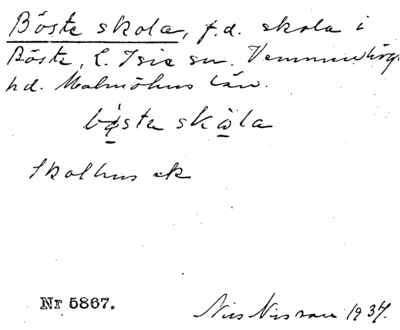 Böste skola, f.d. skola i
Böste, L. Isie sn. Vemmenhögs
hd. Malmöhus län.
bö̀ste skò̱la
Skolhus
Nr 5867.
Nils Nilsson 1937.